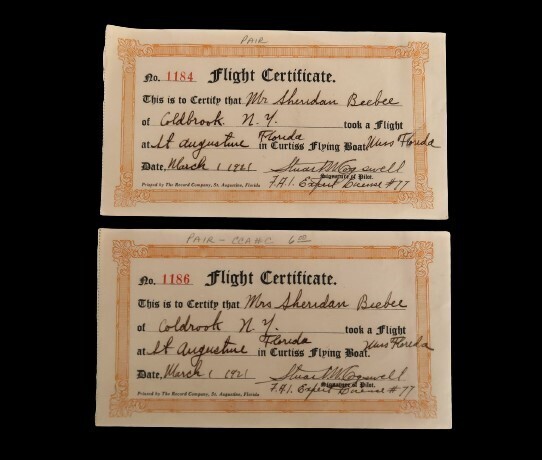 PAIR
No. 1184 Flight Certificate.
This is to Certify that Mr Sheridan Beebee
of Coldbrook N.Y. took a Flight
at St Augustine Florida in Curtiss Flying Boat. Miss Florida
Date, March 1 1921 Stuart M Cogswell
Signature of Pilot.
F.A.I. Expert License #77
Printed by The Record Company, St. Augustine, Florida
PAIR - 6
No. 1186 Flight Certificate.
This is to Certify that Mrs Sheridan Beebee
of Coldrook N.Y. took a Flight
at St Augustine Florida in Curtiss Flying Boat. Miss Florida
Date, March 1 1921 Stuart M Cogswell
Signature of Pilot.
F.A.I. Expert License #77
Printed by The Record Company, St. Augustine, Florida